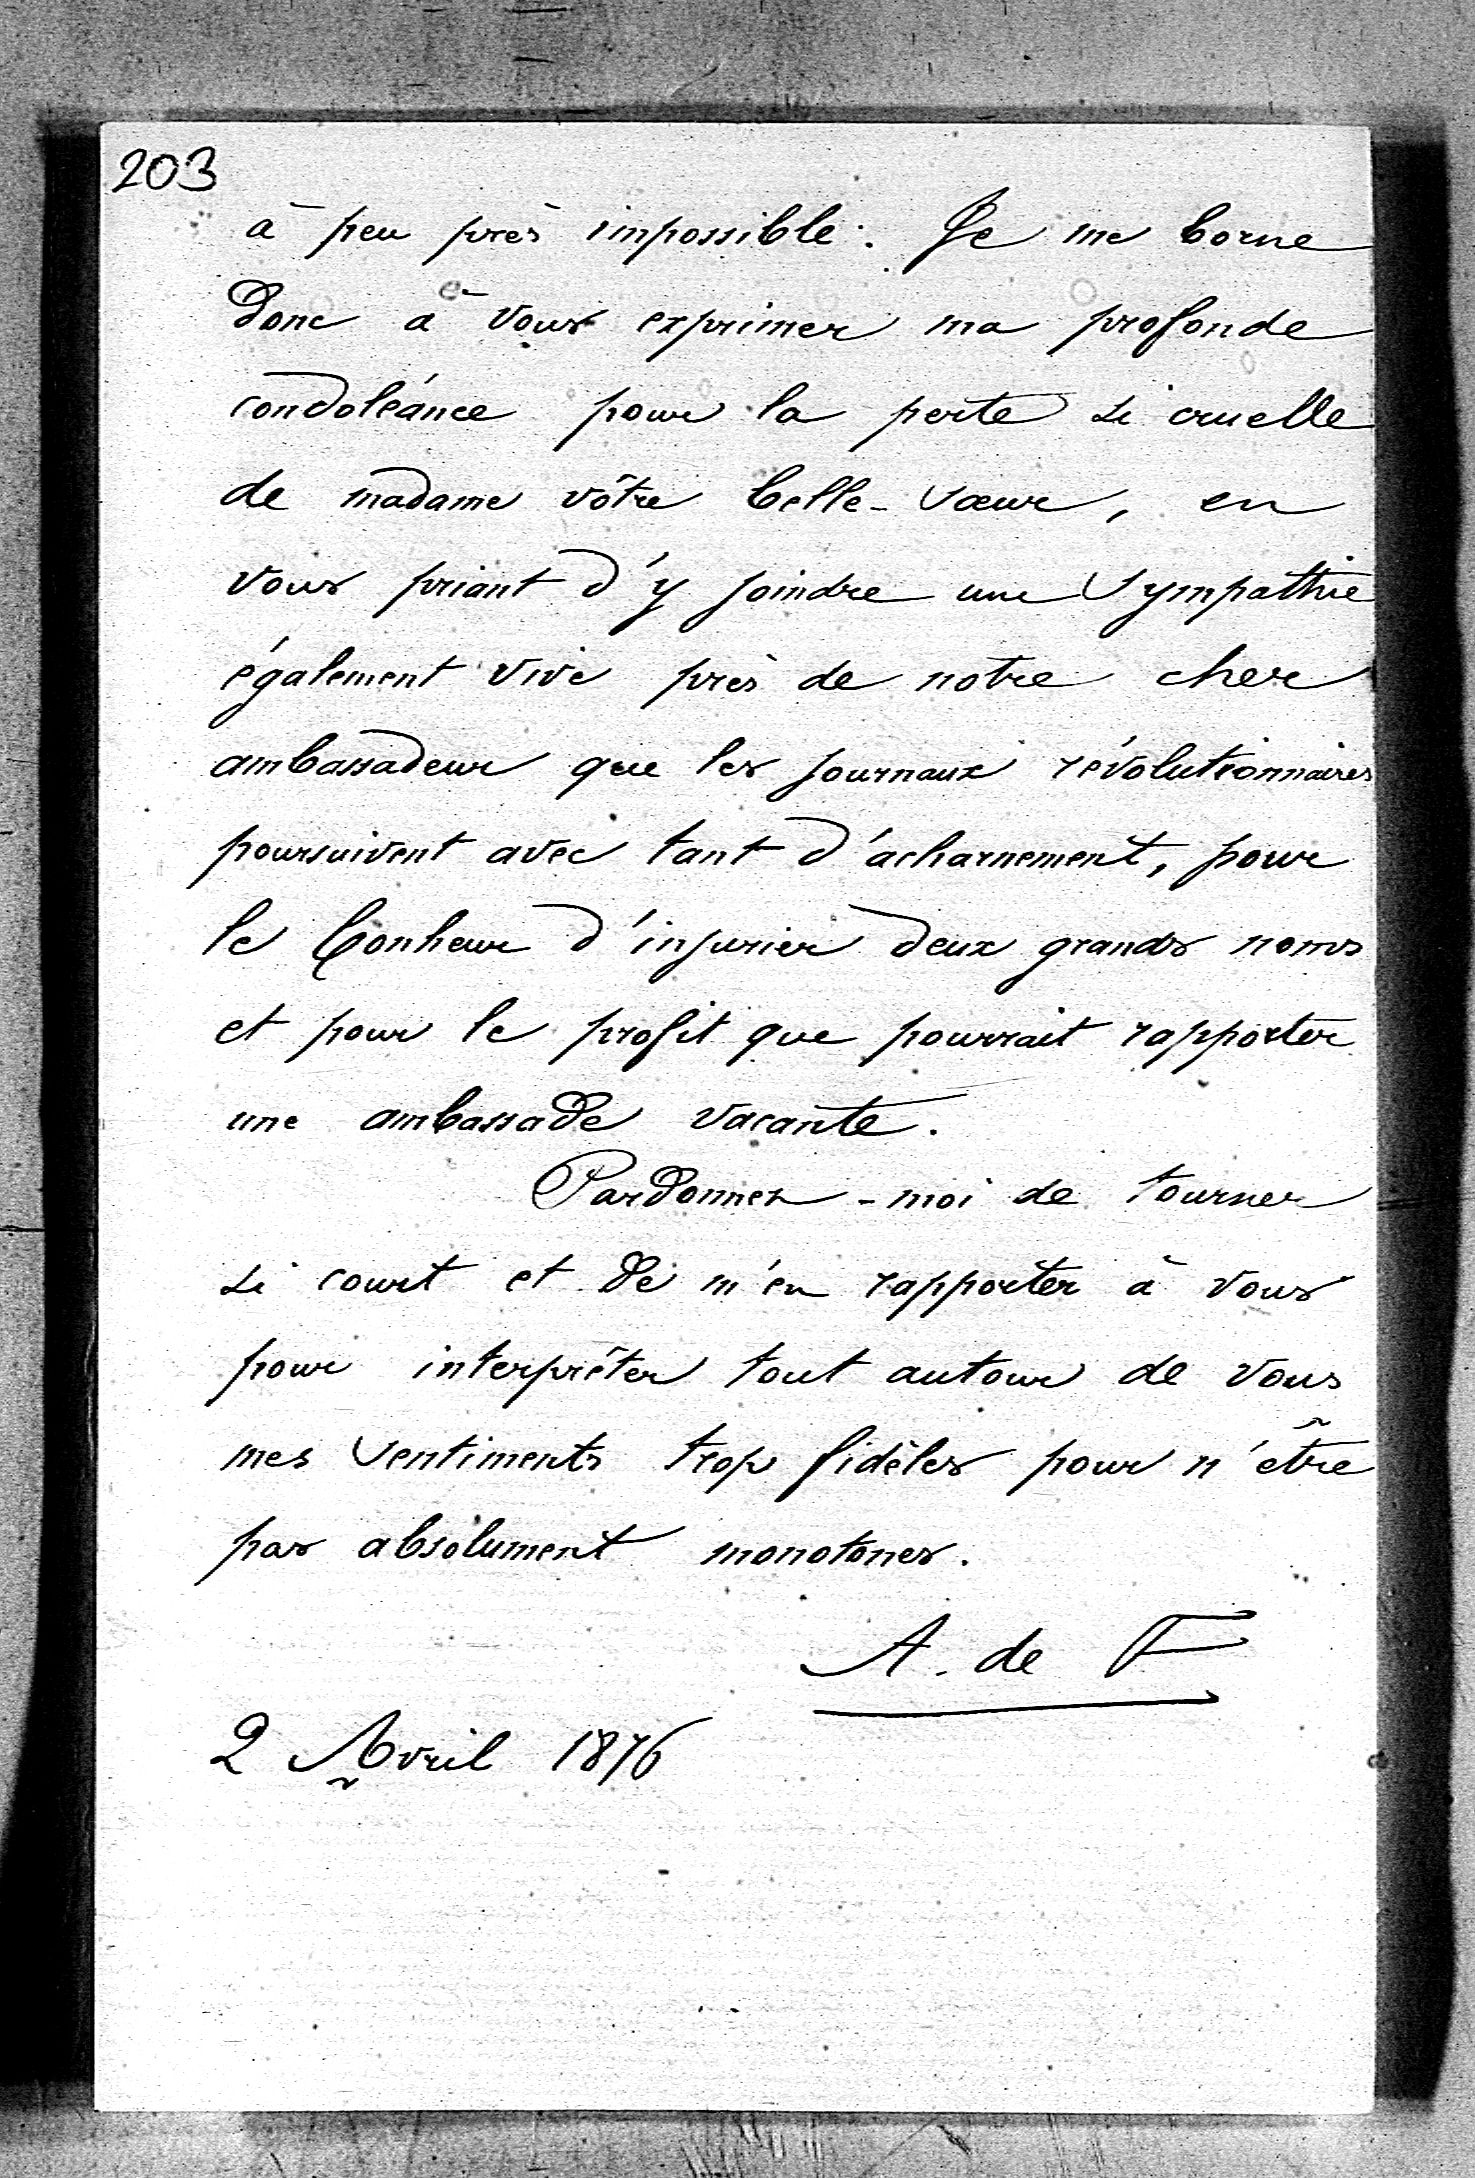 203
à peu près impossible. Je me borne
donc à vous exprimer ma profonde
condoléance pour la perte si cruelle
de madame vôtre belle-sœur, en
vous priant d'y joindre une sympathie
également vive près de notre cher
ambassadeur que les journaux révolutionnaires
poursuivent avec tant d'acharnement, pour
le bonheur d'injurier deux grands noms
et pour le profit que pourrait rapporter
une ambassade vacante.
Pardonnez-moi de tourner
si court et de m'en rapporter à vous
pour interpréter tout autour de vous
mes sentiments trop fidèles pour n'être
pas absolument monotones.
A. de F
2 Avril 1876